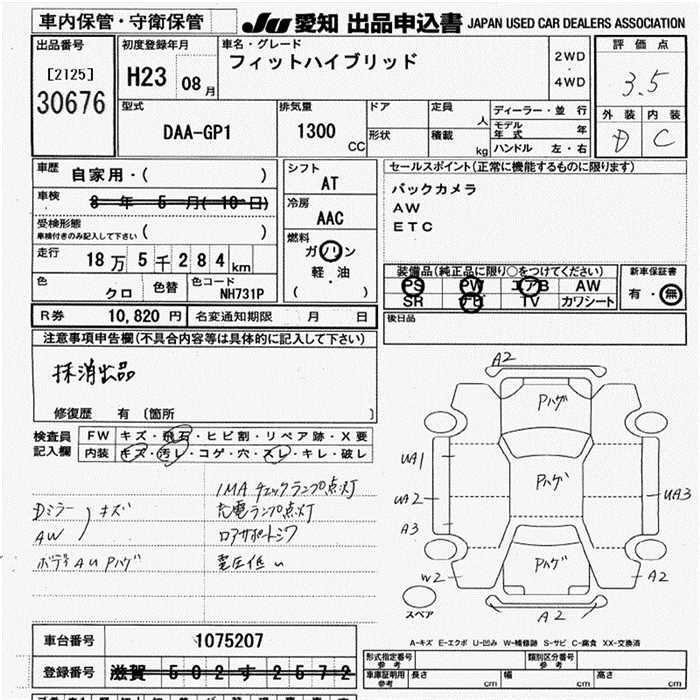 車内保管・守衛保管 JU 愛知 出品申込書 JAPAN USED CAR DEALERS ASSOCIATION
出品番号
[2125]
30676
初度登録年月
H23 08月
車名・グレード
フィットハイブリッド
2WD
・
4WD
評価点
3.5
外装 内装
D C
型式
DAA-GP1
排気量
1300 CC
ドア
形状
定員 人
積載 kg
ディーラー・並行
モデル年式 年
ハンドル 左・右
車歴 自家用・( )
車検 8年 5月( 10日)
受検形態
車検付きのみ記入して下さい ( )
走行 18万5千284km
色 クロ 色替 色コード NH731P
シフト
AT
冷房
AAC
燃料
ガソリン
軽・油
( )
セールスポイント(正常に機能するものに限ります)
バックカメラ
AW
ETC
装備品(純正品に限り○をつけてください)
PS PW エアB AW
SR ナビ TV カワシート
新車保証書
有・無
R券 10,820円 名変通知期限 月 日
後日品
注意事項申告欄(不具合内容等は具体的に記入して下さい)
抹消出品
修復歴 有〔箇所 〕
検査員
記入欄
FW キズ・飛石・ヒビ割・リペア跡・X要
内装 キズ・汚レ・コゲ・穴・スレ・キレ・破レ
IMAチェックランプ点灯
Dミラー
AW
キズ
充電ランプ点灯
ロアサポートシワ
ボディAUPハゲ
電圧低い
A2
Pハゲ
UA1
Pハゲ
UA2
UA3
A3
Pハゲ
W2
A2
A2
スペア
A-キズ E-エクボ U-凹み W-補修跡 S-サビ C-腐食 XX-交換済
車台番号 1075207
登録番号 滋賀 502 す 2572
形式指定番号
参考
類別区分番号
参考
車庫証明用
参考
長さ cm 幅 cm 高さ cm